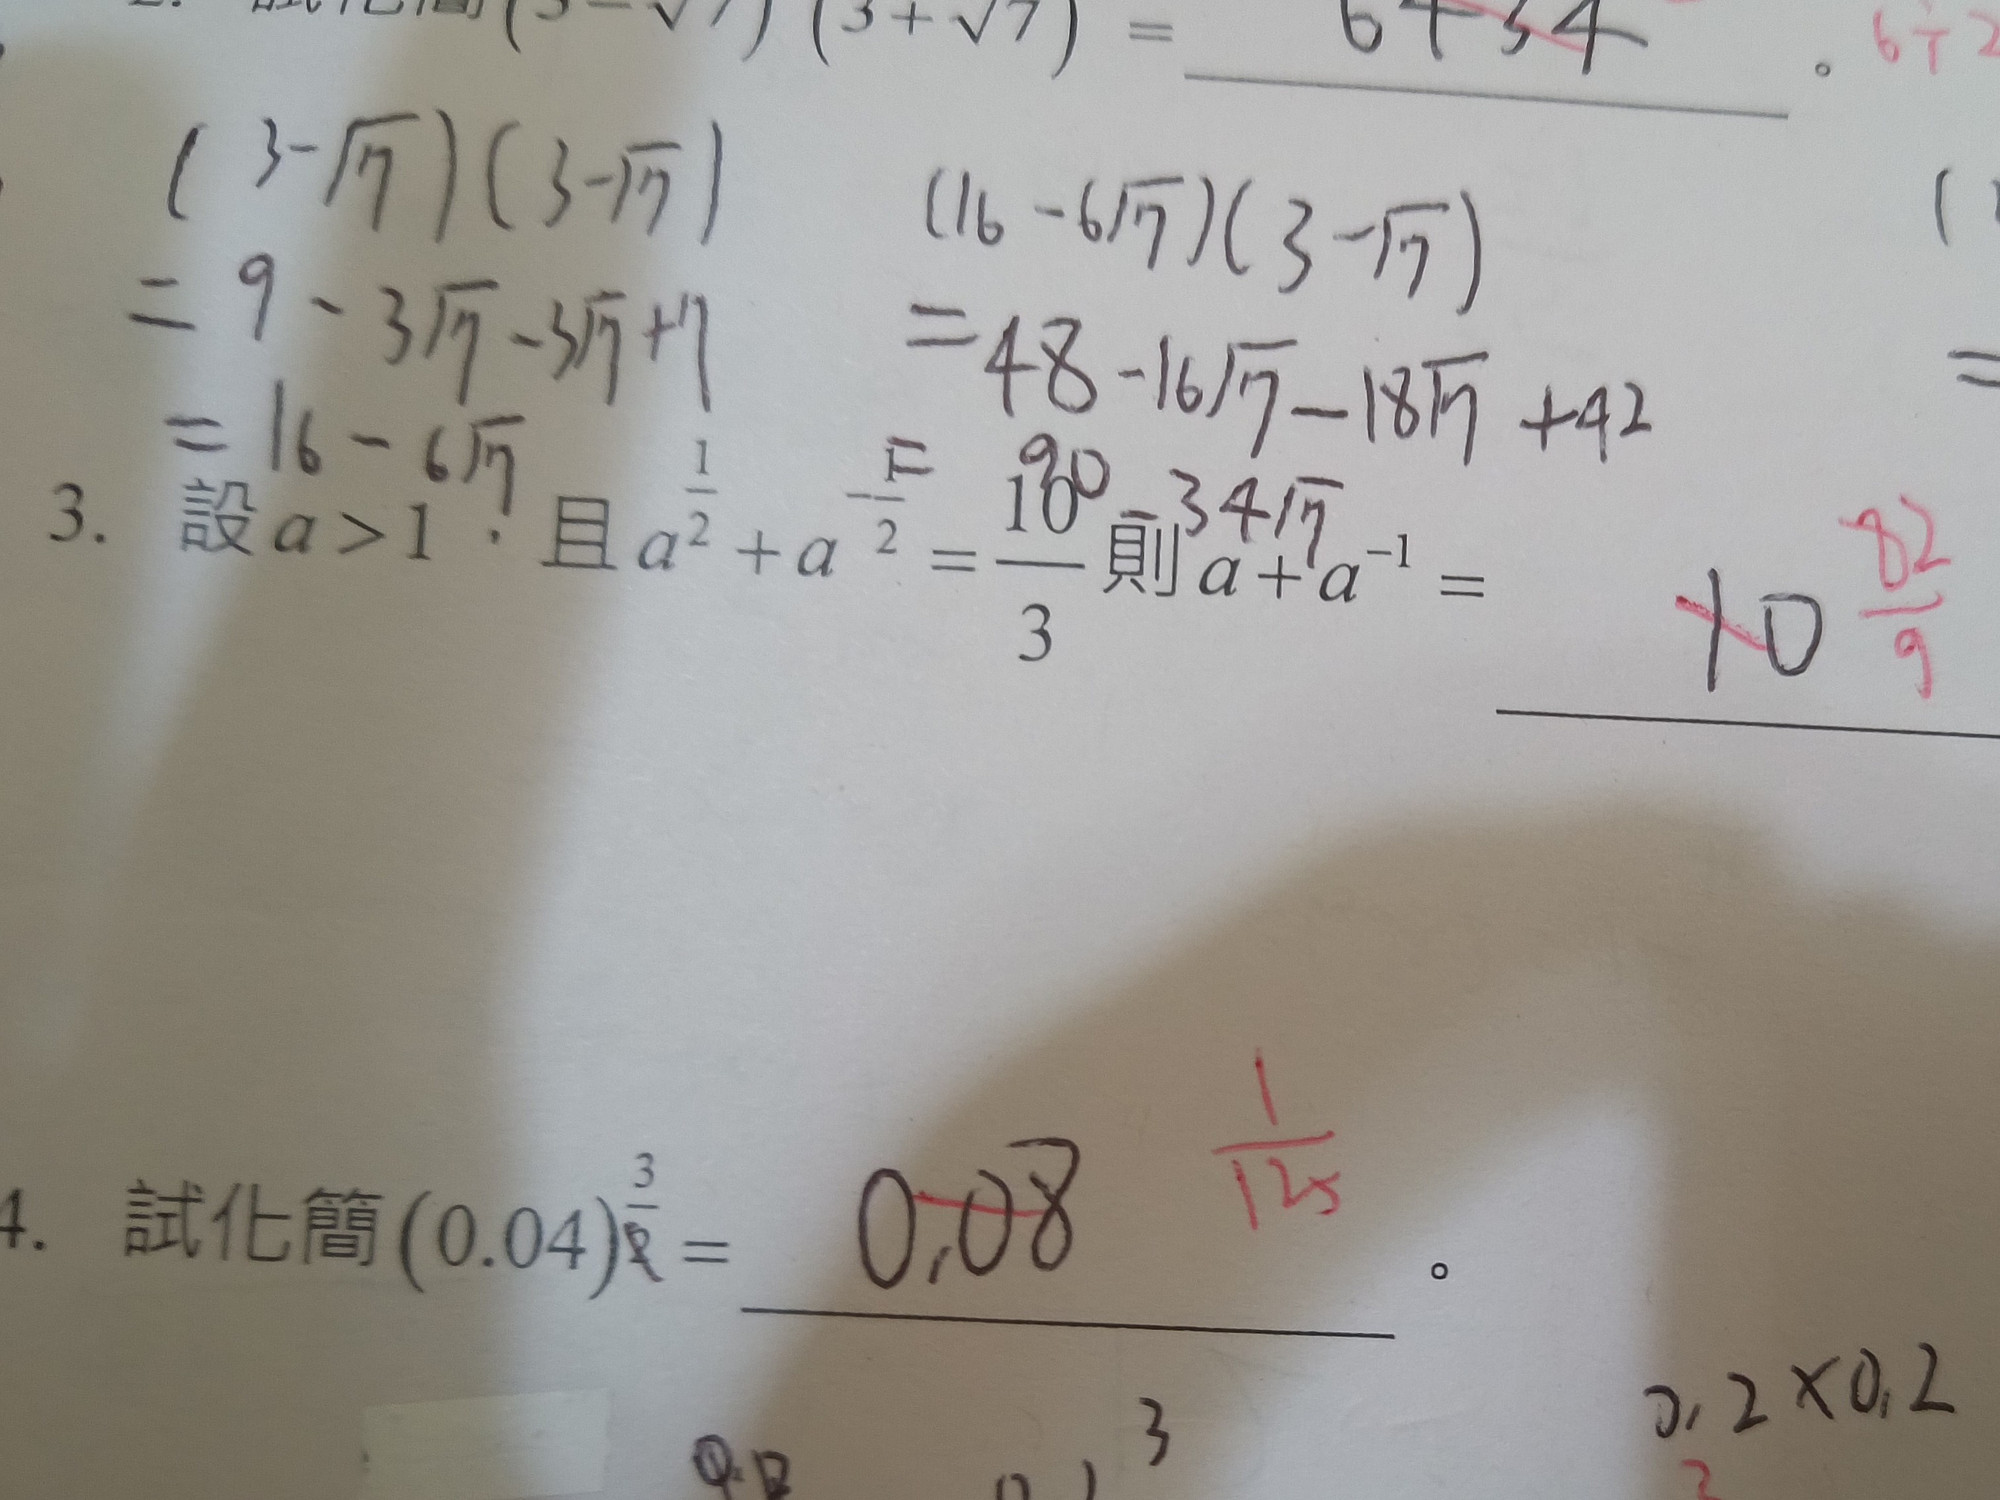 (3-√7)(3+√7) =
6÷2
(3-√7)(3-√7)
= 9 - 3√7 - 3√7 + 7
= 16 - 6√7
(16 - 6√7)(3 - √7)
= 48 - 16√7 - 18√7 + 42
= 90 - 34√7
3. 設 a > 1,且 a^{1/2} + a^{-1/2} = 10/3 則 a + a^{-1} = 10
82/9
4. 試化簡 (0.04)^{3/2} = 0.08 。
1/125
0.2×0.2
3